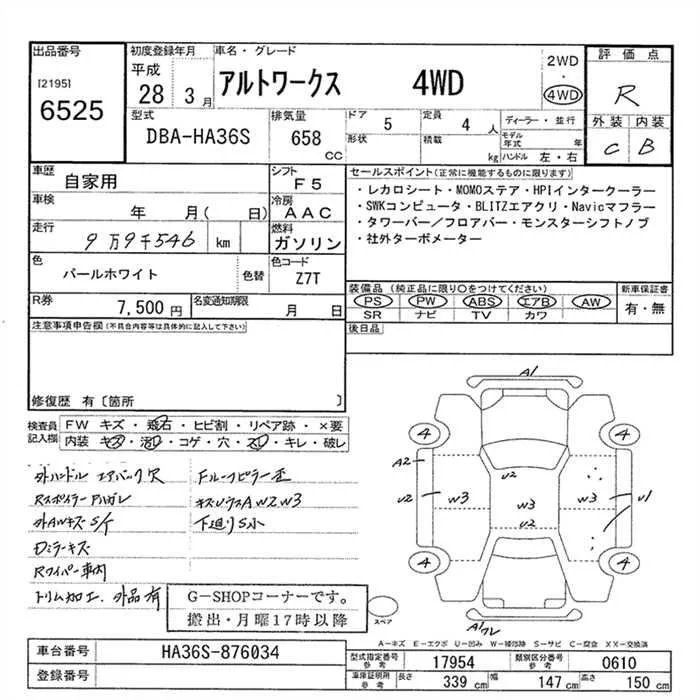 出品番号
[2195]
6525
初度登録年月
平成
28 3月
車名・グレード
アルトワークス 4WD
2WD
・
4WD
評価点
R
外装 内装
C B
型式
DBA-HA36S
排気量
658
CC
ドア
5
定員
4人
形状
積載
kg
ディーラー・並行
モデル年式 年
ハンドル 左・右
車歴
自家用
シフト
F5
車検
年 月( 日)
冷房
AAC
走行
9万9千546 km
燃料
ガソリン
色
パールホワイト
色替
色コード
Z7T
R券
7,500円
名変通知期限
月 日
セールスポイント(正常に機能するものに限り)
・レカロシート・MOMOステア・HPIインタークーラー
・SWKコンピュータ・BLITZエアクリ・Navicマフラー
・タワーバー/フロアバー・モンスターシフトノブ
・社外ターボメーター
装備品 (純正品に限り○をつけてください)
PS PW ABS エアB AW
SR ナビ TV カワ
新車保証書
有・無
後日品
注意事項申告欄(不具合内容等は具体的に記入して下さい)
修復歴 有〔箇所 〕
検査員記入欄
FW キズ・飛石・ヒビ割・リペア跡・×要
内装 キズ・汚レ・コゲ・穴・スレ・キレ・破レ
外ハンドル エアバック穴
Rスポイラー Pハガレ
外AWキズ S/T
Dミラーキズ
Rワイパー車内
トリム加工、外品有
Fルーフピラー歪
キズ・ソウスA W2 W3
下廻りS小
G-SHOPコーナーです。
搬出・月曜17時以降
スペア
A1
4 4
A2
U2
U2 W3 W3 W3 U1
U2
4 4
A1
A-キズ E-エクボ U-凹み W-補修跡 S-サビ C-腐食 XX-交換済
車台番号
HA36S-876034
登録番号
型式指定番号
参考
17954
類別区分番号
参考
0610
車庫証明所
参考
長さ
339 cm
幅
147 cm
高さ
150 cm